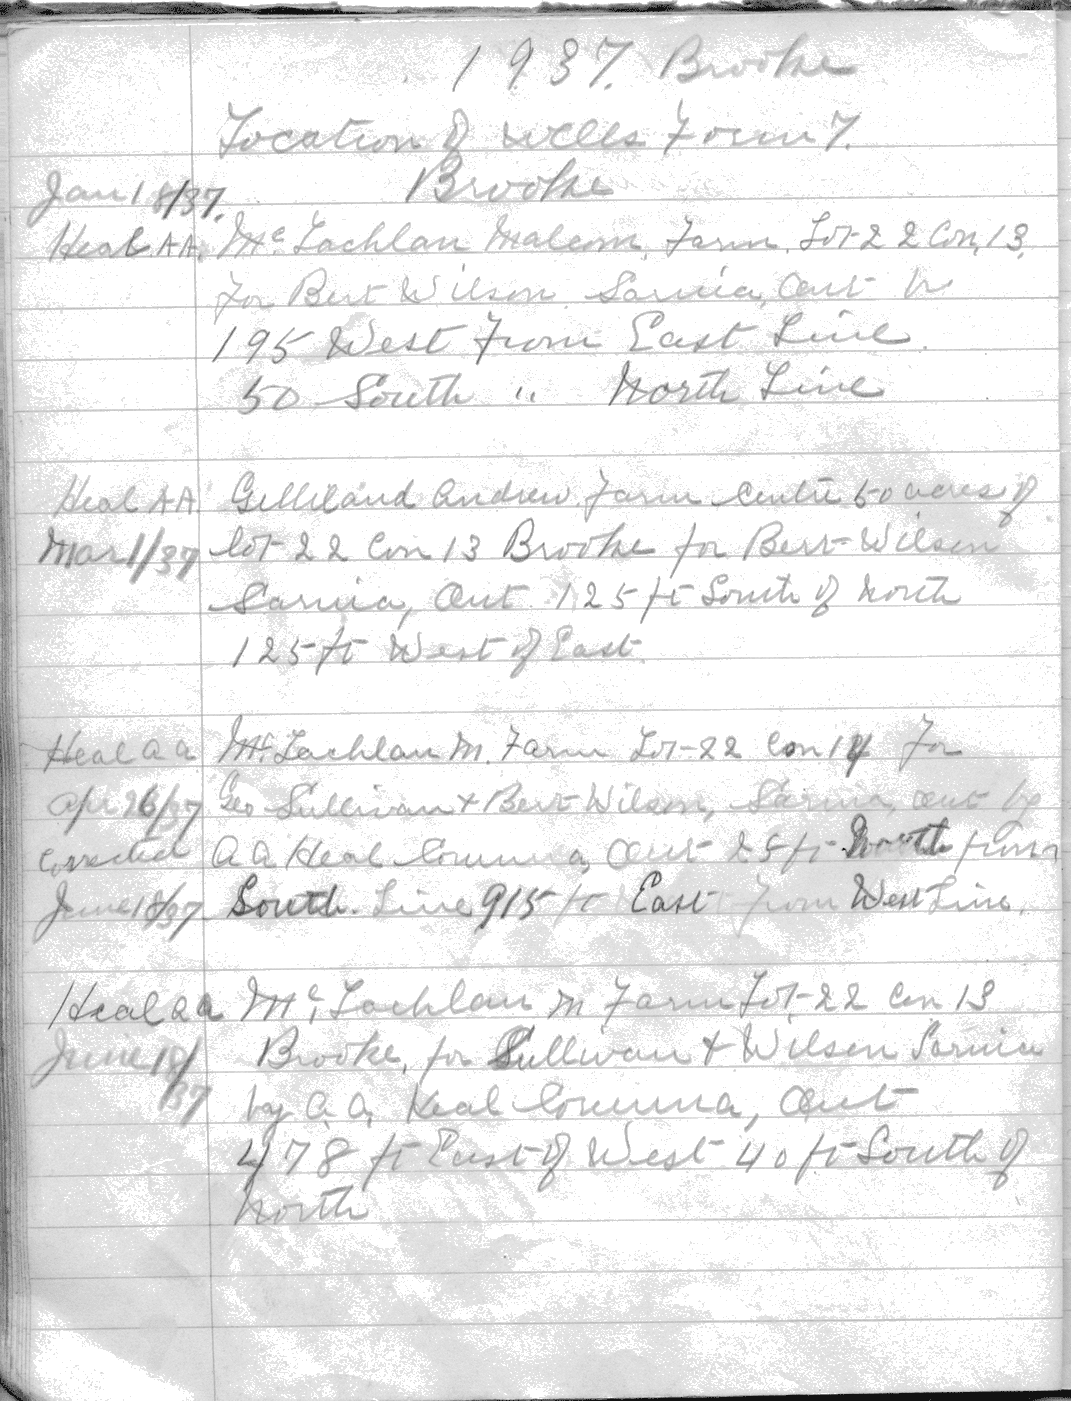 1937. Brooke
Location of Wells Form 7.
Jan 18/37. Brooke
Heal A A. Mc Lachlan Malcom, Farm, Lot 22 Con, 13,
for Bert Wilson Sarnia, Ont
195 West From East Line.
50 South " North Line
Heal A A. Gilliland Andrew Farm Centre 50 acres of
Mar 1/37 lot 22 Con 13 Brooke for Bert Wilson
Sarnia, Ont 125 ft South of North
125 ft West of East
Heal a a Mc Lachlan M. Farm Lot-22 Con 14 For
Apr 26/37 Geo Sullivan + Bert Wilson, Sarnia, Ont by
Corrected A A Heal Corunna, Ont 25 ft North from
June 18/37 South. Line 915 ft East from West Line.
Heal a a Mc, Lachlan M Farm Lot, 22 Con 13
June 18/ Brooke, for Sullivan + Wilson Sarnia
37 by A. A. Heal Corunna, Ont
478 ft East of West 40 ft South of
North